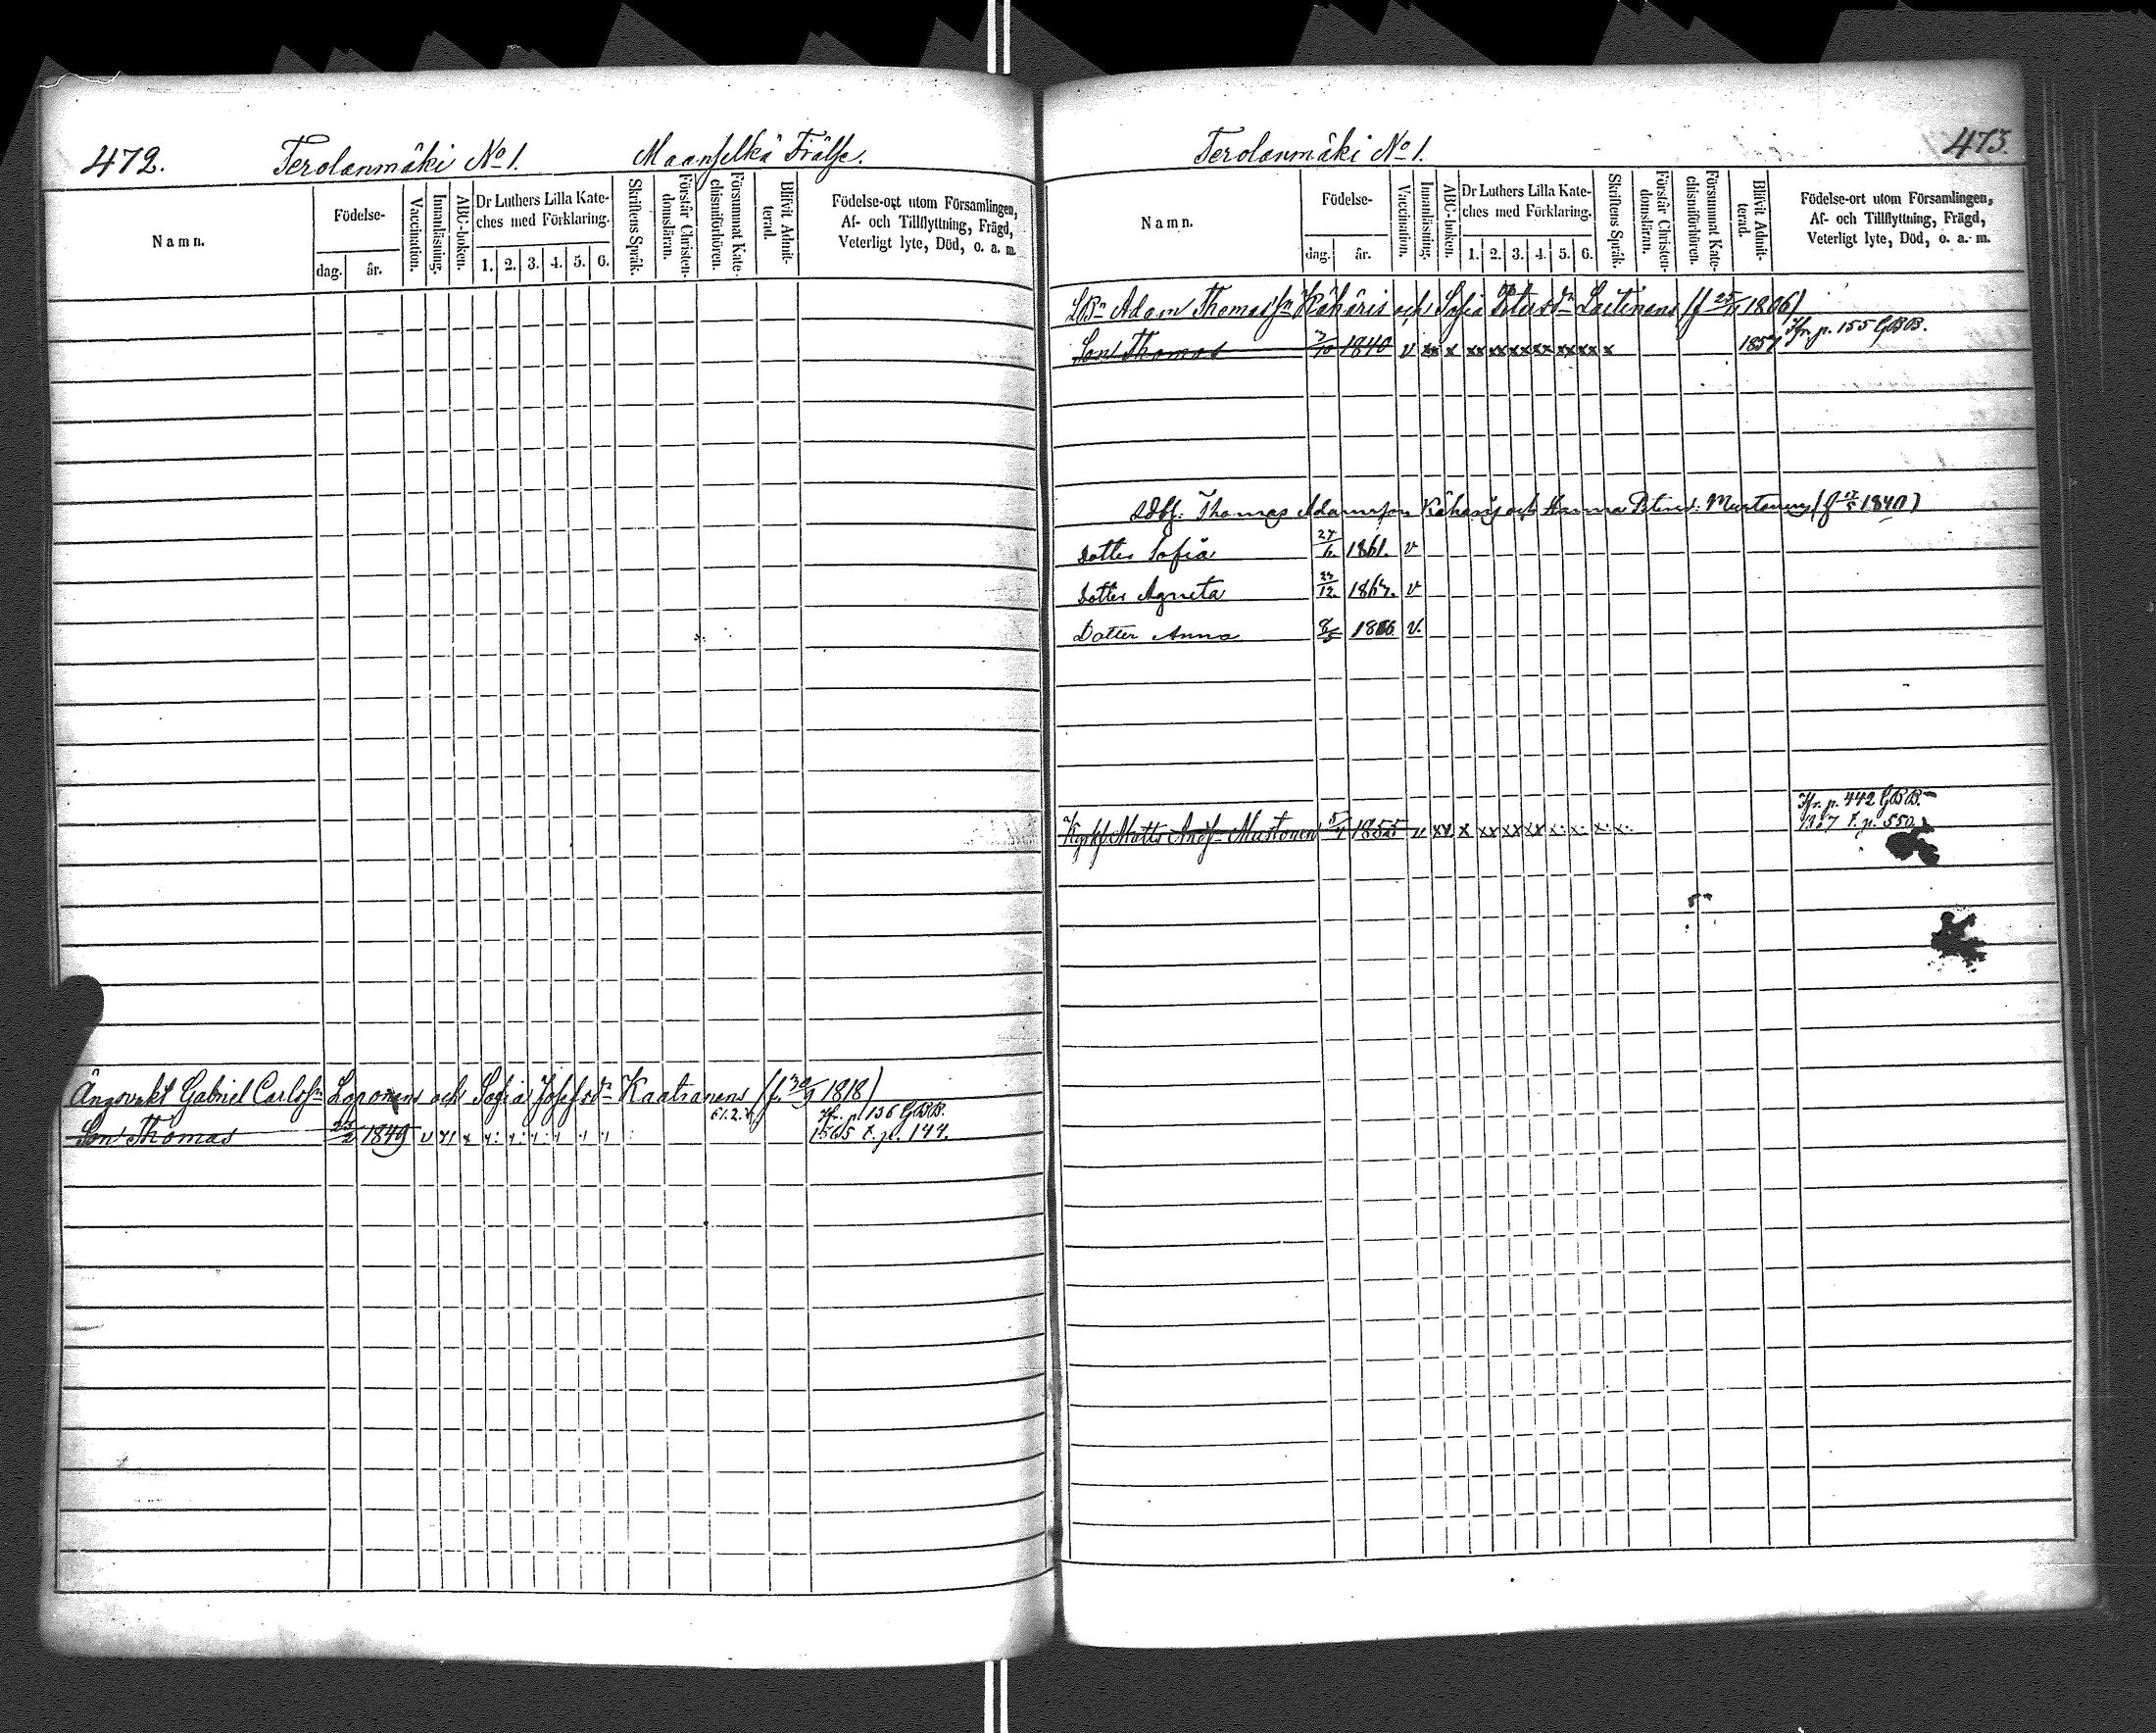 472. Terolanmäki No 1. Maanselkä Frälse.
Namn.
Födelse-
dag. år.
Vaccination.
Innanläsning.
ABC-boken.
Dr Luthers Lilla Kate-
ches med Förklaring.
1. 2. 3. 4. 5. 6.
Skriftens Språk.
Förstår Christen-
domsläran.
Försummat Kate-
chismiförhören.
Blifvit Admit-
terad.
Födelse-ort utom Församlingen,
Af- och Tillflyttning, Frägd,
Veterligt lyte, Död, o. a. m.
Gabriel Carlsson Loponens och Sofia Josefsdr Kaatranens (f. 30/9 1818)
Kfr. p. 156 GBB.
Son Thomas 25/2 1849 v
1865 t. p. 144.
Terolanmäki No 1. 473.
Namn.
Födelse-
dag. år.
Vaccination.
Innanläsning.
ABC-boken.
Dr Luthers Lilla Kate-
ches med Förklaring.
1. 2. 3. 4. 5. 6.
Skriftens Språk.
Förstår Christen-
domsläran.
Försummat Kate-
chismiförhören.
Blifvit Admit-
terad.
Födelse-ort utom Församlingen,
Af- och Tillflyttning, Frägd,
Veterligt lyte, Död, o. a. m.
Adam Thomasson Kähäris och Sofia Petersdr Laitinens (f 25/11 1806)
Kfr. p. 155 GBB.
Son Thomas 7/10 1840 v xx x xx xx xx xx xx xx x 1857
Thomas Adamsson Kähäris och Anna Petersd. Mustonens (f 1840)
Dotter Sofia 27/6 1861. v
Dotter Agneta 23/12 v
Dotter Anna 8/5 1866 v.
Kfr. p. 442 GBB.
Matts Andsn Mustonen 5/4 1855 v xx x xx xx xx x. x. x. x.
1867 t. p. 550.